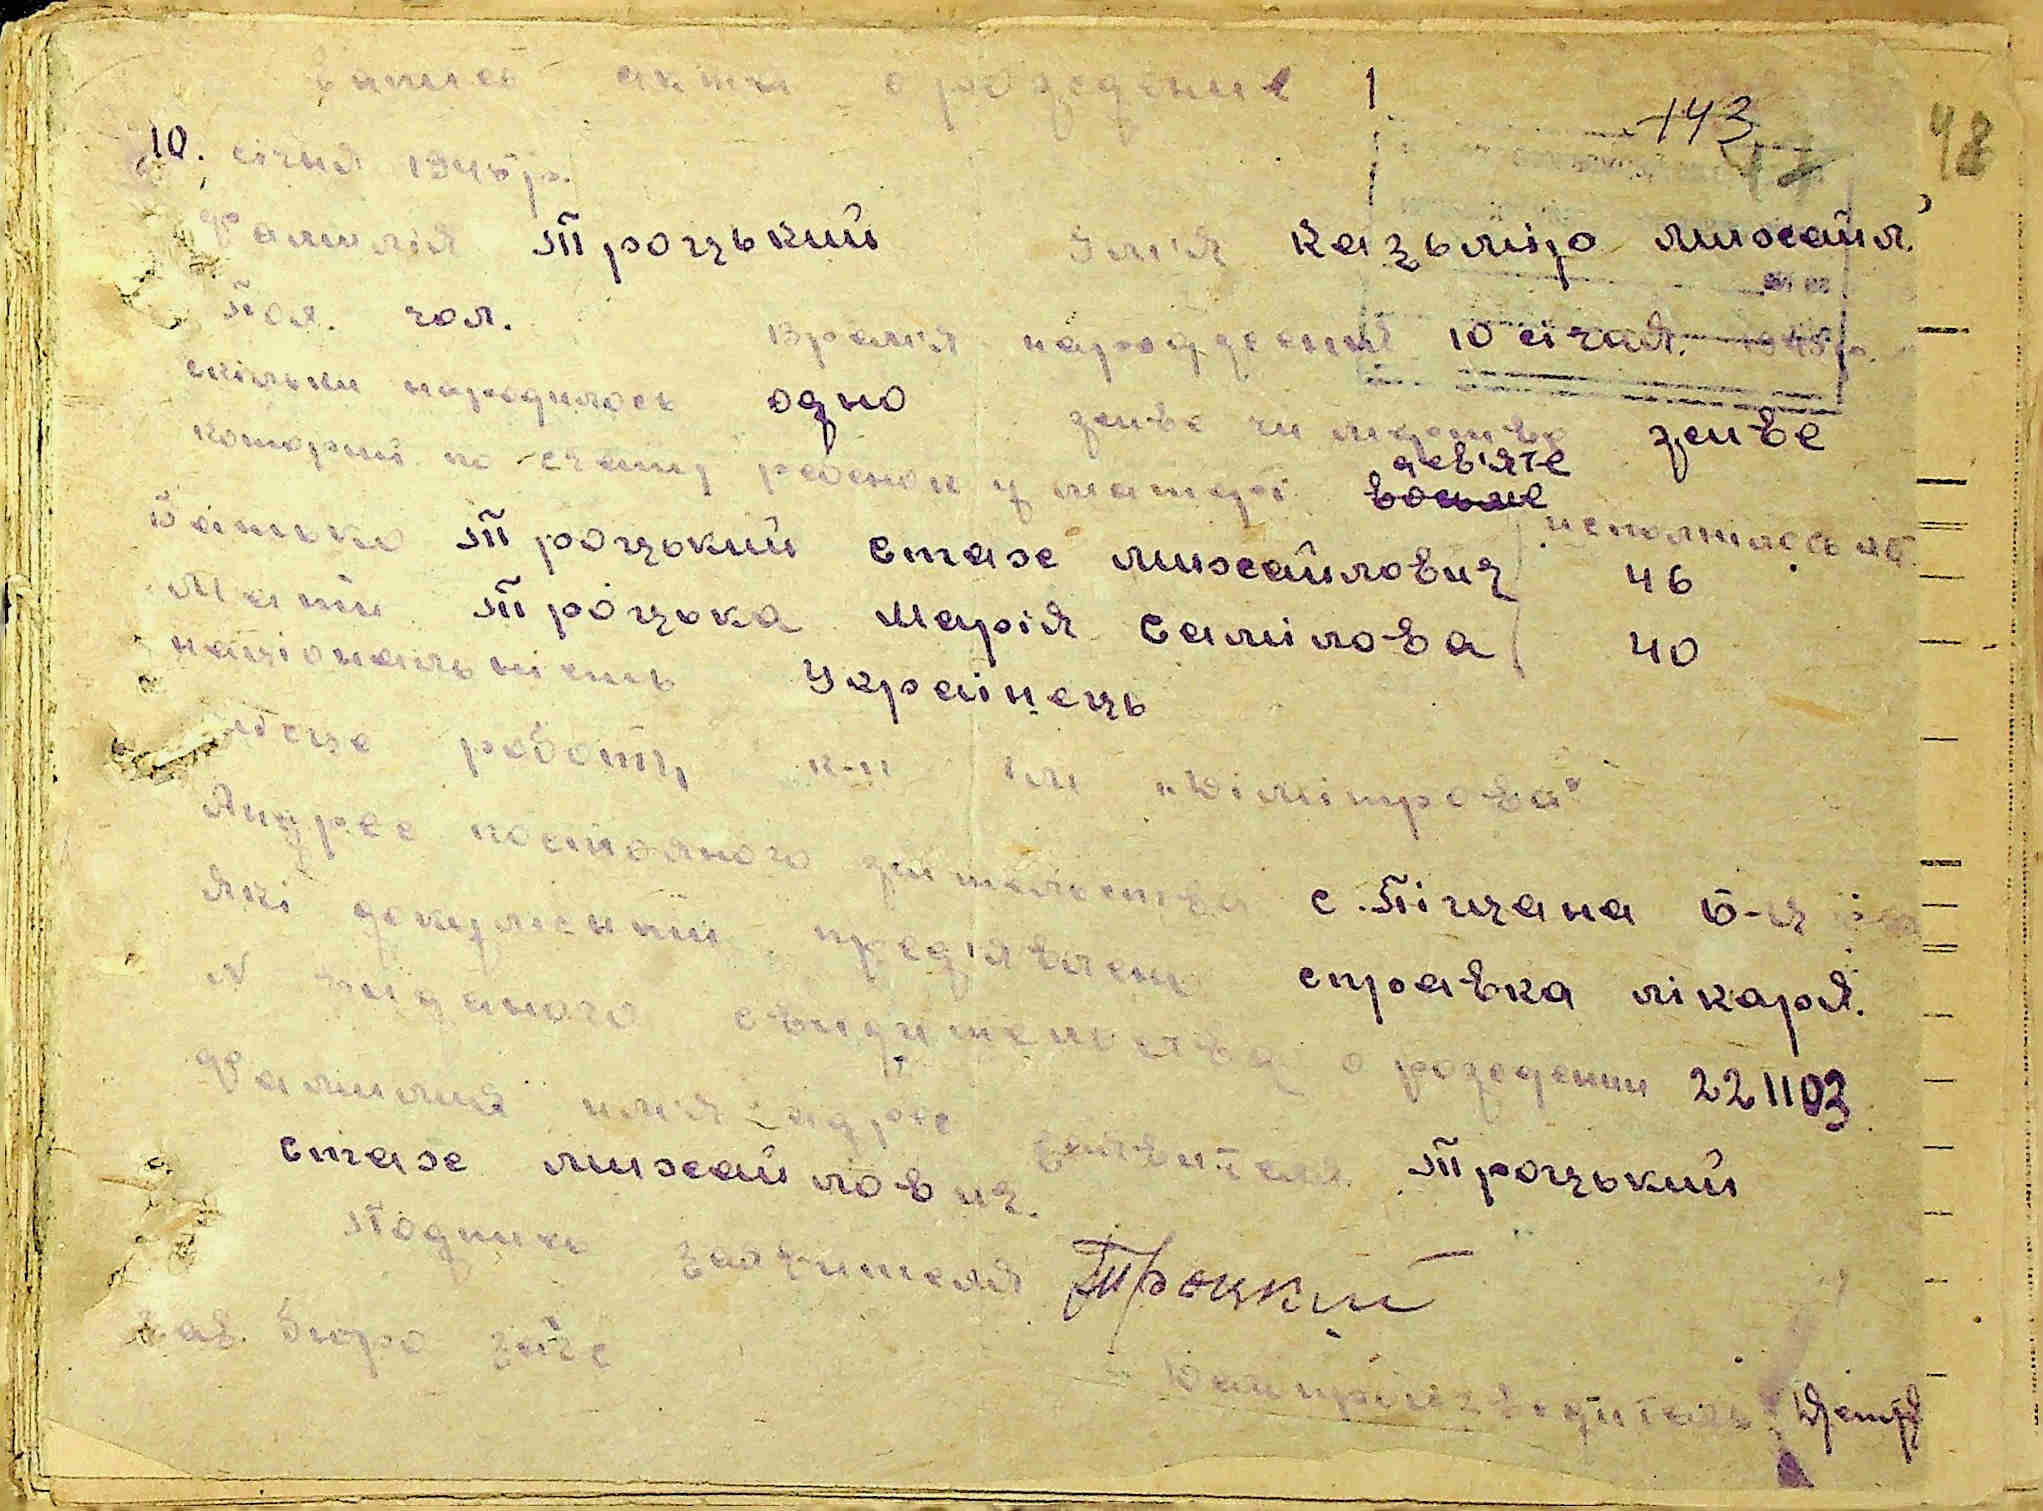 Запись акта о рождение 1
143
17
48
10. січня 1945 р.
Фамилія Троцький Імʼя Казьмір Михайл.
Пол. чол. Времʼя народження 10 січня. 1945 р.
скільки народилось одно живе чи мертве живе
которий по счету ребенок у матері девʼяте восьме
Батько Троцький Стах Михайлович исполнилось лет
46
Мати Троцька Марія Самілова 40
національність Українець
місце роботи к-п ім „Дімітрова“
Андрес постояного жительства с. Піщана Б-ц
Які документи предʼявлені справка лікаря.
N виданого свидительства о рождении 221103
Фамилия имʼя і адрес заявителя Троцький
Стах Михайлович.
Подпись заявителя Троцкий
Зав. бюро загс